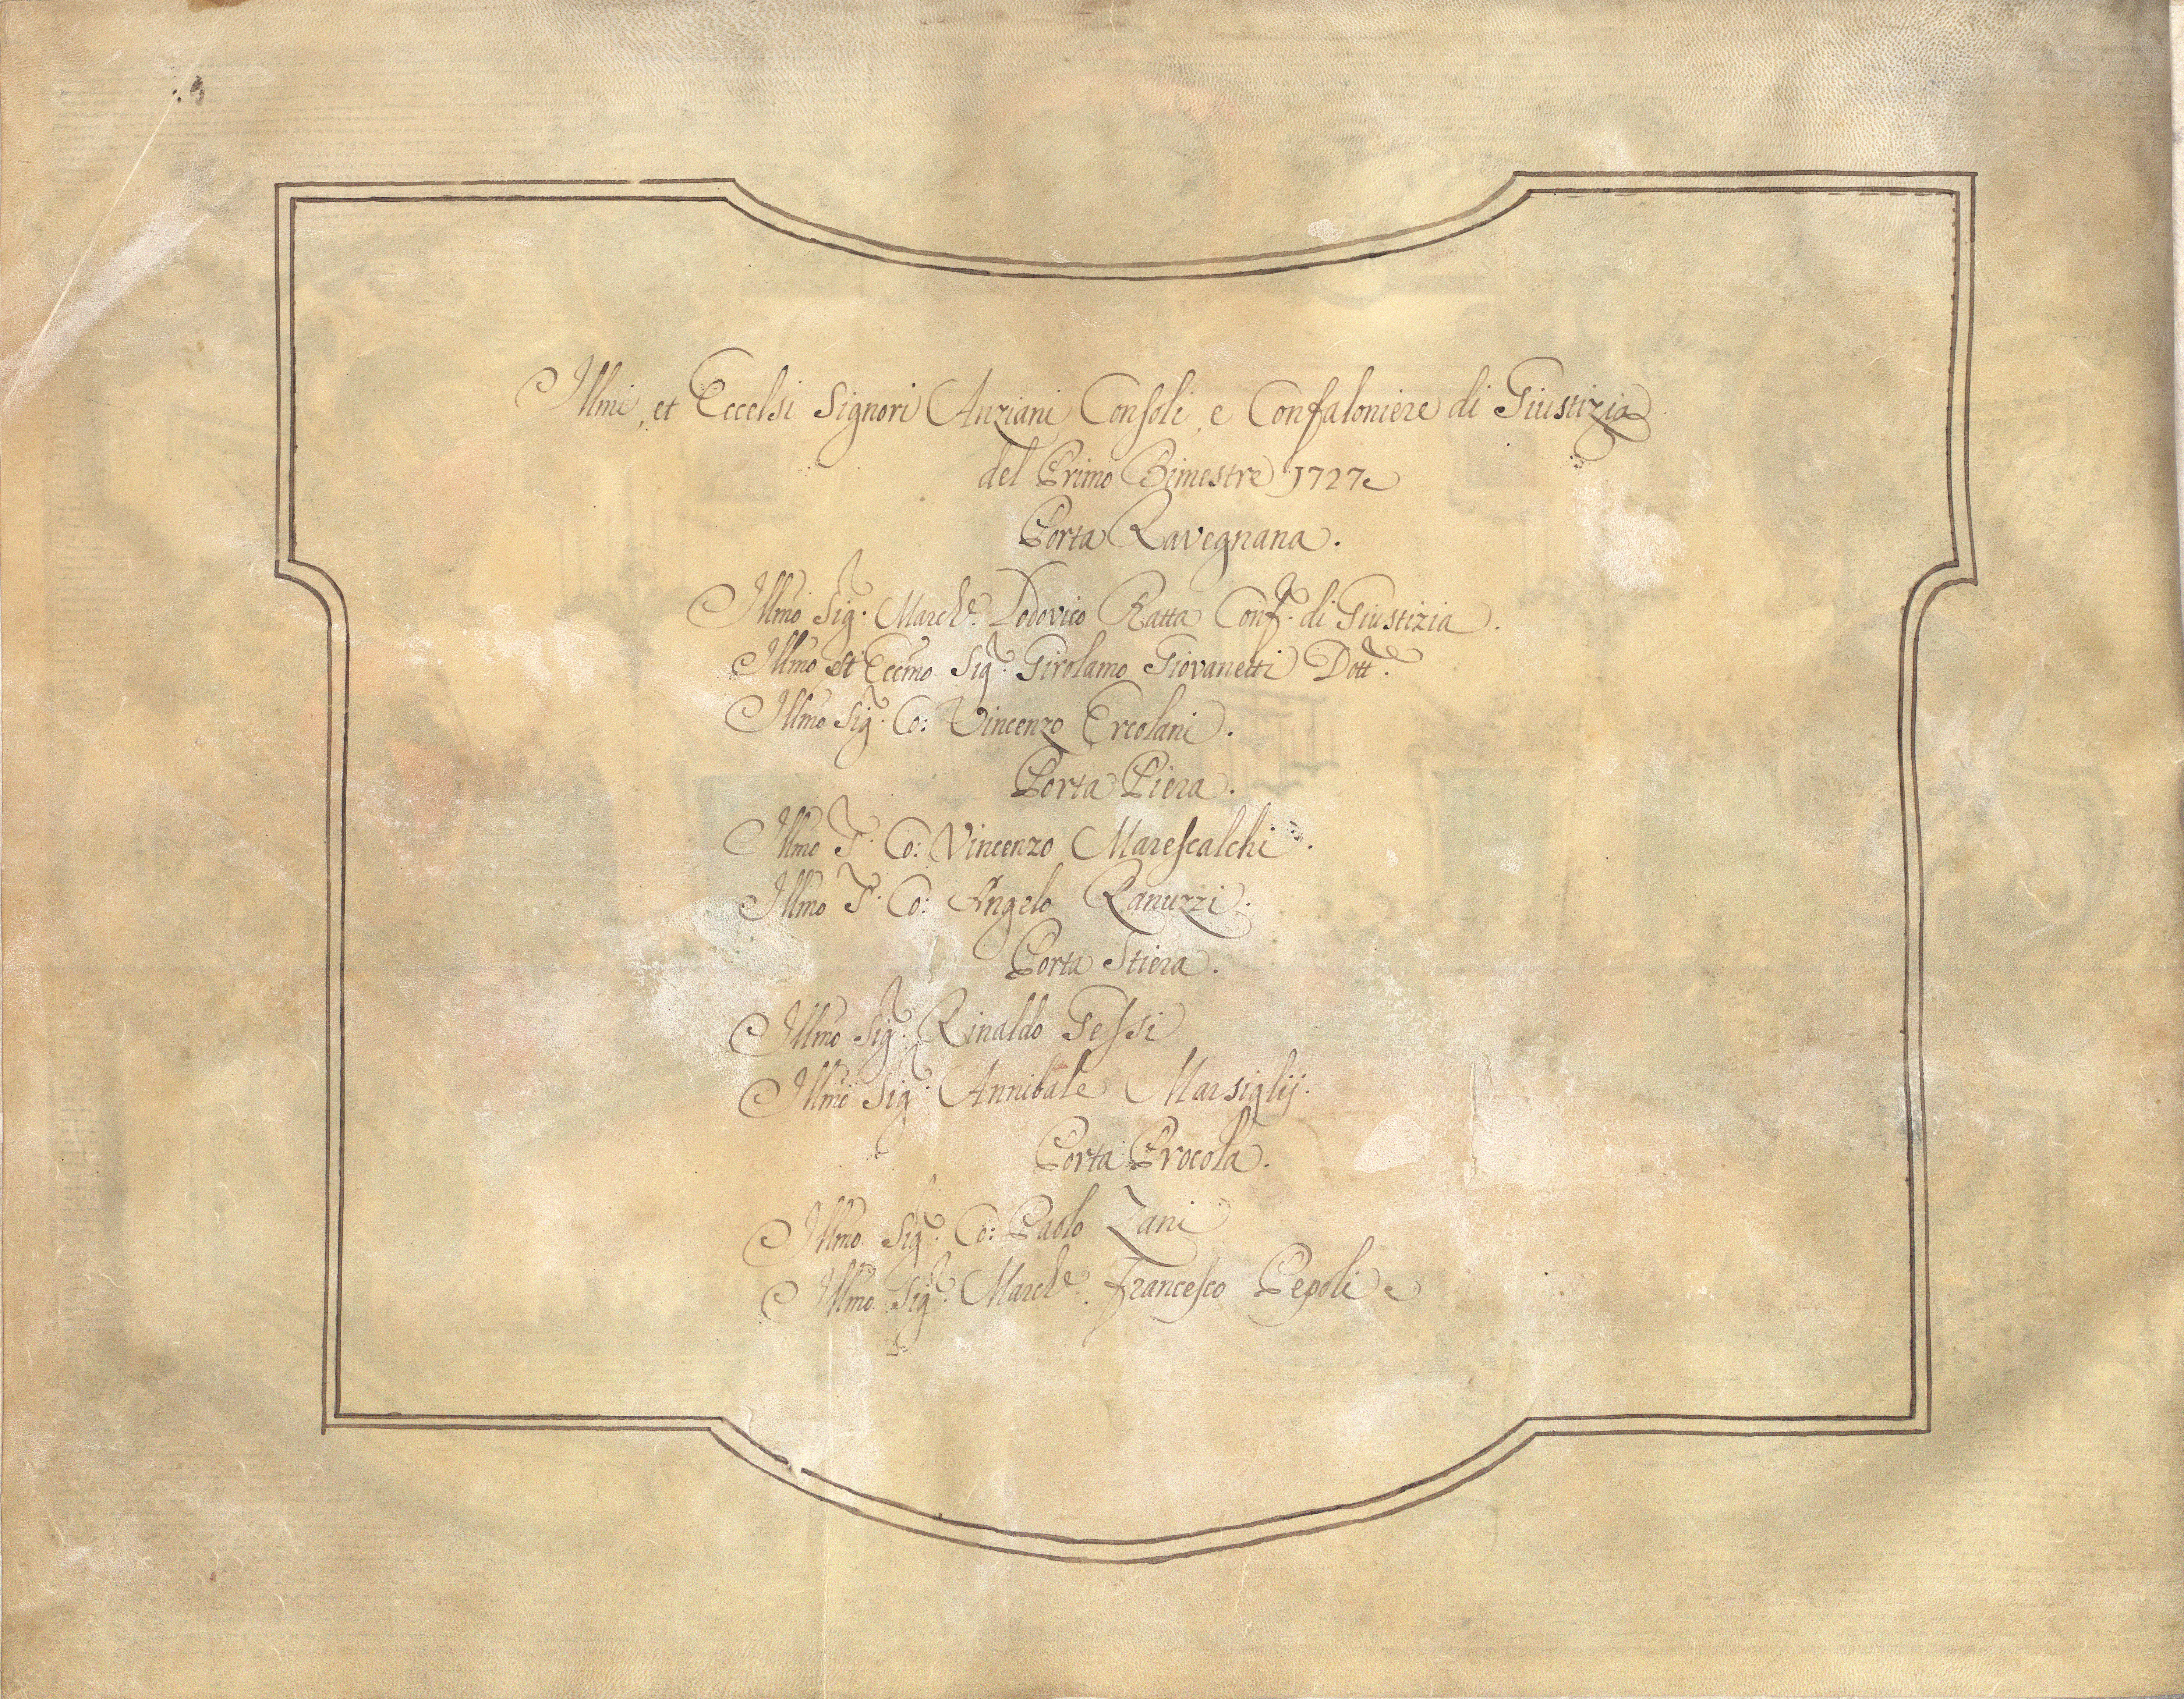 Illmi, et Eccelsi Signori Anziani Consoli, e Confaloniere di Giustizia
del Primo Bimestre 1727
Porta Ravegnana.
Illmo Sig.r March.e Lodovico Ratta Conf.r di Giustizia.
Illmo et Eccmo Sig.r Girolamo Giovanetti Dott.re
Illmo Sig.r Co: Vincenzo Ercolani.
Porta Piera.
Illmo S.r Co: Vincenzo Marescalchi.
Illmo S.r Co: Angelo Ranuzzi.
Porta Stiera.
Illmo Sig.r Rinaldo Gessi
Illmo Sig.r Annibale Marsiglij.
Porta Procola.
Illmo Sig.r Co: Paolo Zani
Illmo Sig.r March.e Francesco Pepoli